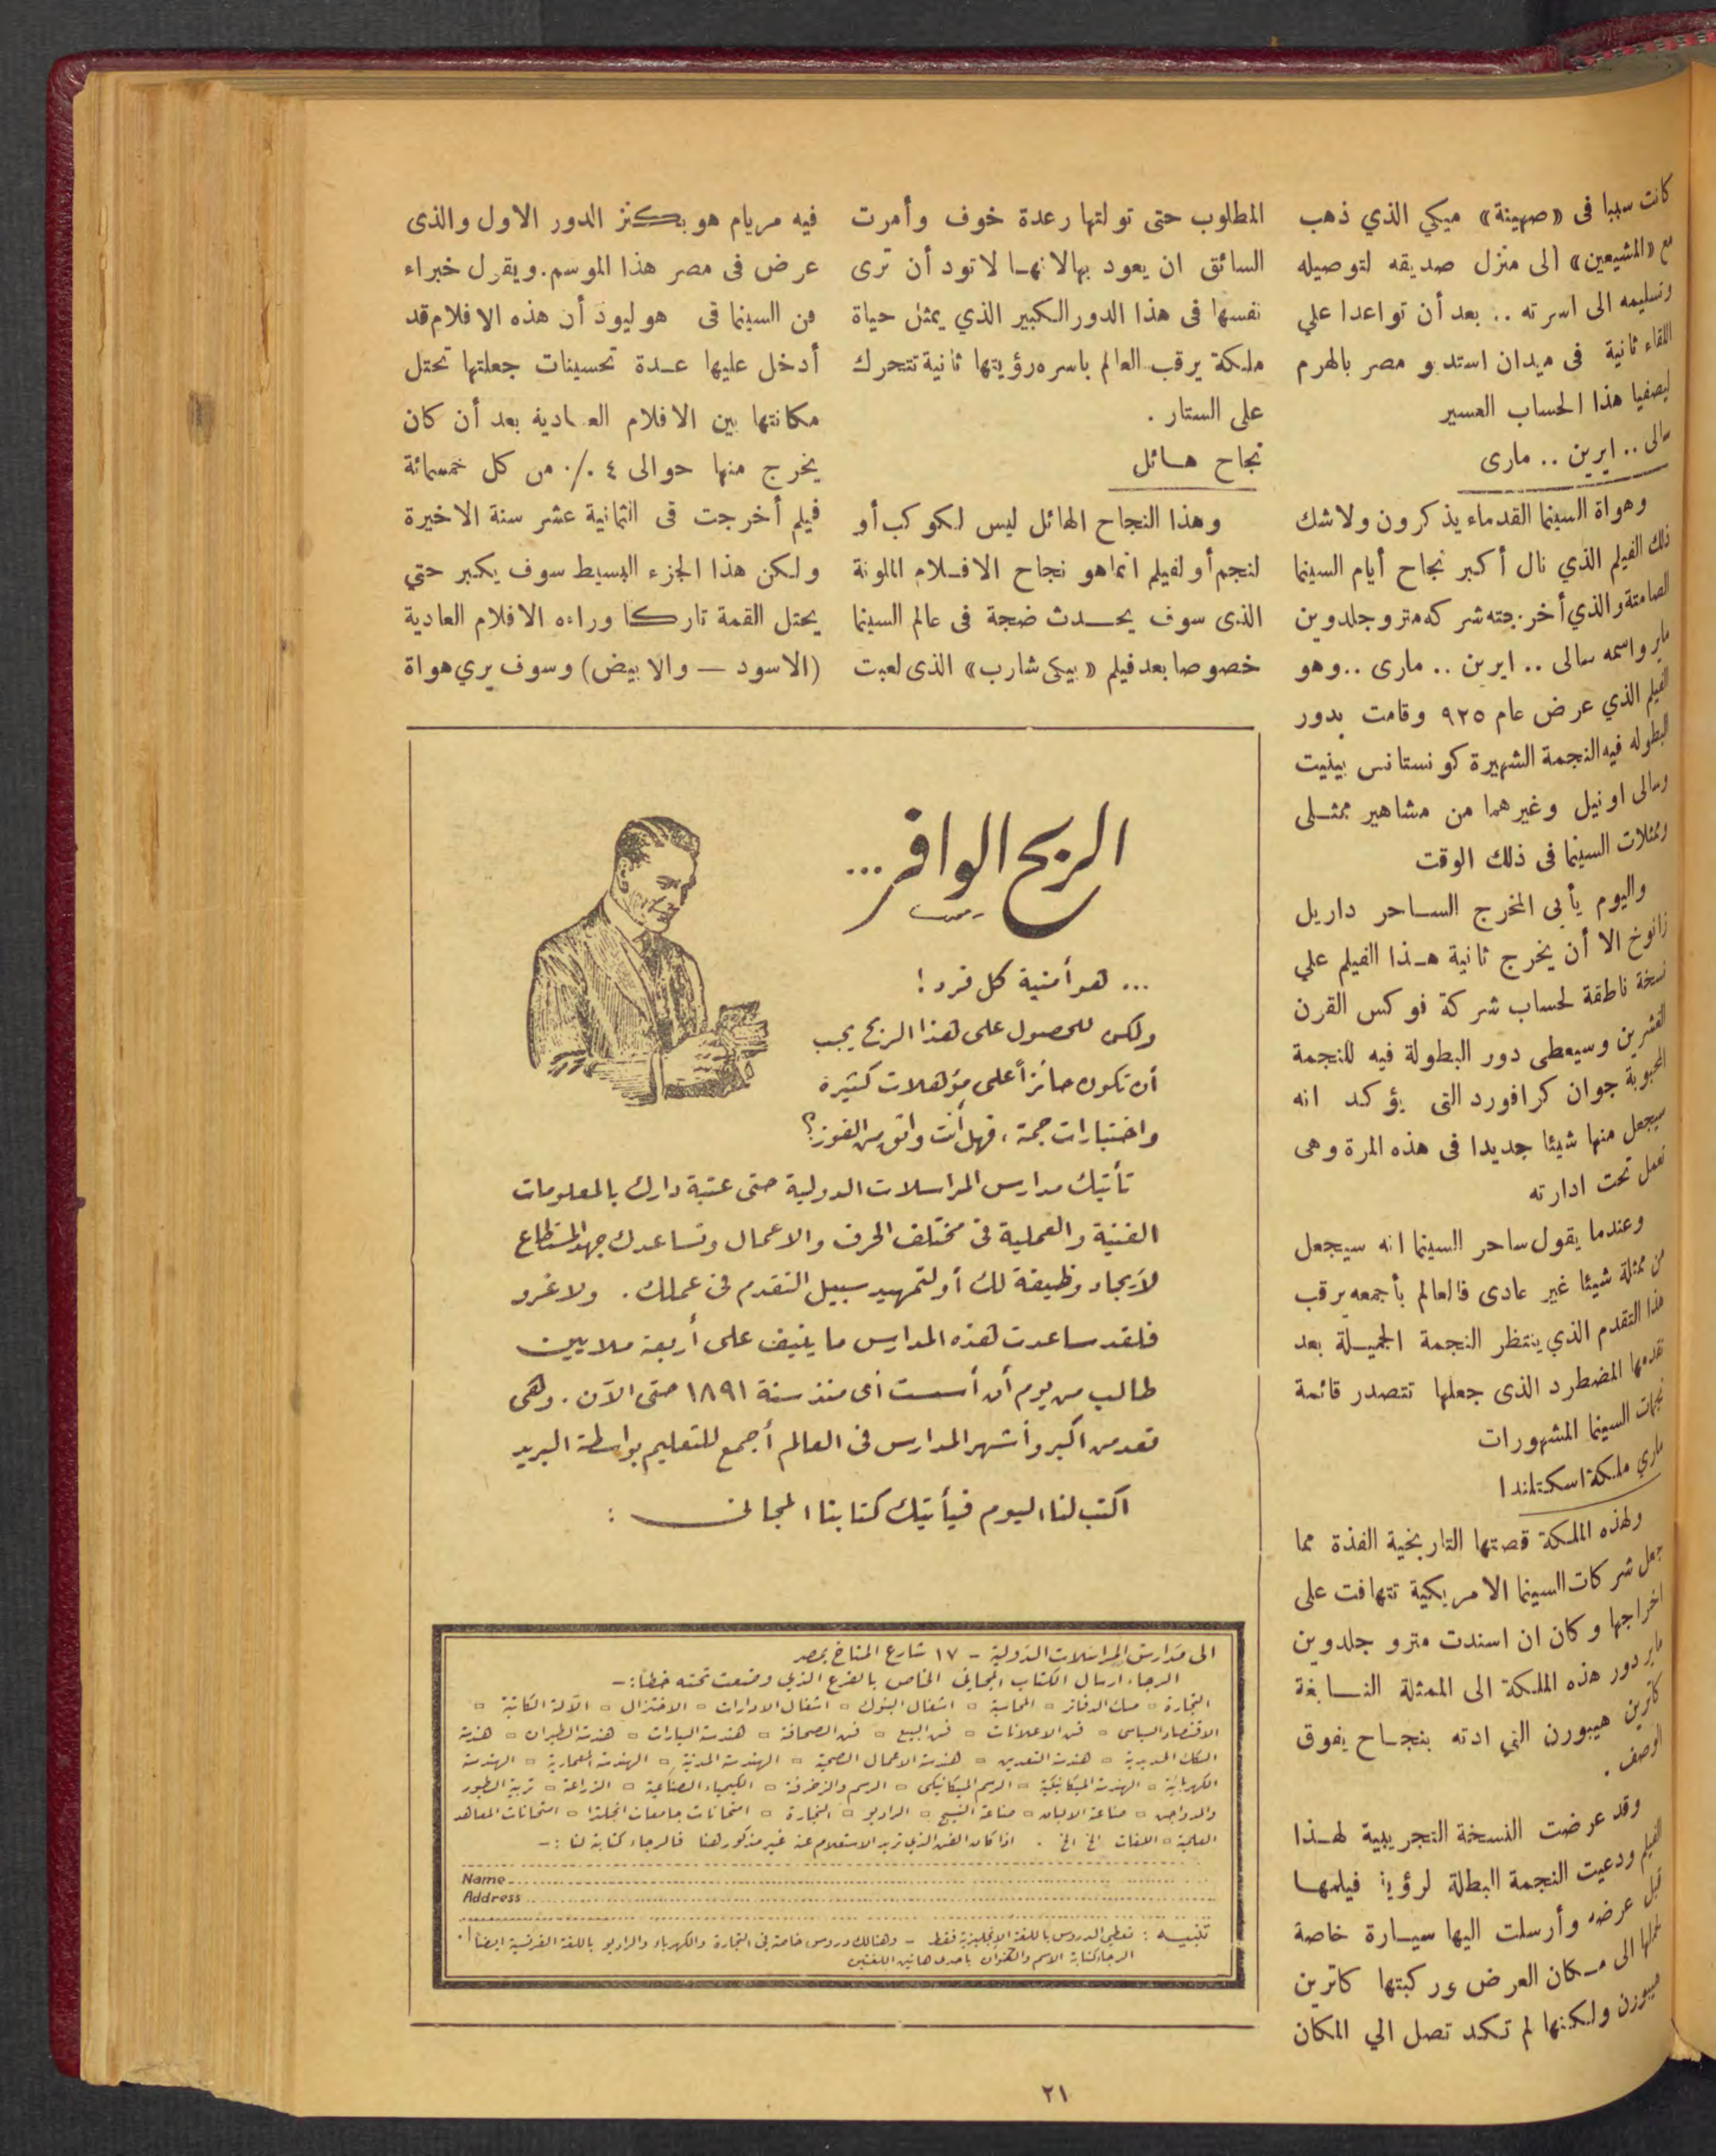 كانت سببا فى «صهينة» ميكي الذي ذهب
مع «المشيعين» الى منزل صديقه لتوصيله
وتسليمه الى اسرته .. بعد أن تواعدا علي
اللقاء ثانية فى ميدان استديو مصر بالهرم
ليصفيا هذا الحساب العسير
سالى .. ايرين .. مارى
وهواة السينما القدماء يذكرون ولا شك
ذلك الفيلم الذي نال أكبر نجاح أيام السينما
الصامتة والذي أخرجته شركه مترو جلدوين
ماير واسمه سالى .. ايرين .. مارى .. وهو
الفيلم الذي عرض عام ٩٢٥ وقامت بدور
البطوله فيه النجمة الشهيرة كونستانس بينيت
وسالى اونيل وغيرهما من مشاهير ممثلى
وممثلات السينما فى ذلك الوقت
واليوم يأبى المخرج الساحر داريل
زانوخ الا أن يخرج ثانية هذا الفيلم علي
نسخة ناطقة لحساب شركة فوكس القرن
العشرين وسيعطى دور البطولة فيه للنجمة
المحبوبة جوان كرافورد التى يؤكد انه
سيجعل منها شيئا جديدا فى هذه المرة وهى
تعمل تحت ادارته
وعندما يقول ساحر السينما انه سيجعل
من ممثلة شيئا غير عادى فالعالم بأجمعه يرقب
هذا التقدم الذي ينتظر النجمة الجميلة بعد
تقدمها المضطرد الذى جعلها تتصدر قائمة
نجمات السينما المشهورات
ماري ملكة اسكتلندا
ولهذه الملكة قصتها التاريخية الفذة مما
جعل شركات السينما الامريكية تتهافت على
اخراجها وكان ان اسندت مترو جلدوين
ماير دور هذه الملكة الى الممثلة النابغة
كاترين هيبورن التي ادته بنجاح يفوق
الوصف .
وقد عرضت النسخة التجريبية لهذا
الفيلم ودعيت النجمة البطلة لرؤية فيلمها
قبل عرضه وأرسلت اليها سيارة خاصة
لحملها الى مكان العرض وركبتها كاترين
هيبورن ولكنها لم تكد تصل الي المكان
المطلوب حتى تولتها رعدة خوف وأمرت
السائق ان يعود بها لانها لا تود أن ترى
نفسها فى هذا الدور الكبير الذي يمثل حياة
ملكة يرقب العالم باسره رؤيتها ثانية تتحرك
على الستار .
نجاح هائل
وهذا النجاح الهائل ليس لكوكب أو
لنجم أو لفيلم انما هو نجاح الافلام الملونة
الذى سوف يحدث ضجة فى عالم السينما
خصوصا بعد فيلم «بيكى شارب» الذى لعبت
فيه مريام هوبكنز الدور الاول والذى
عرض فى مصر هذا الموسم . ويقرل خبراء
فن السينما فى هوليود أن هذه الافلام قد
أدخل عليها عدة تحسينات جعلتها تحتل
مكانتها بين الافلام العادية بعد أن كان
يخرج منها حوالى ٤ ٪ من كل خمسمائة
فيلم أخرجت فى الثمانية عشر سنة الاخيرة
ولكن هذا الجزء البسيط سوف يكبر حتي
يحتل القمة تاركا وراءه الافلام العادية
(الاسود — والابيض) وسوف يري هواة
الربح الوافر ...
... هو أمنية كل فرد !
ولكن للحصول على هذا الربح يجب
أن تكون حائزاً على مؤهلات كثيره
واختبارات جمة ، فهل أنت واثق من الفوز ؟
تأتيك مدارس المراسلات الدولية حتى عتبة دارك بالمعلومات
الفنية والعملية فى مختلف الحرف والاعمال وتساعدك جهد المستطاع
لايجاد وظيفة لك أو لتمهيد سبيل التقدم فى عملك . ولا غرو
فلقد ساعدت هذه المدارس ما ينيف على أربعة ملايين
طالب من يوم أن أسست أى منذ سنة ١٨٩١ حتى الآن . وهى
تعد من اكبر وأشهر المدارس فى العالم أجمع للتعليم بواسطة البريد
اكتب لنا اليوم فيأتيك كتابنا المجانى :
الى مدارس المراسلات الدولية – ١٧ شارع المناخ بمصر
الرجاء ارسال الكتاب المجانى الخاص بالفرع الذى وضعت تحته خطا : –
التجارة ▫ مسك الدفاتر ▫ المحاسبة ▫ اشغال البنوك ▫ اشغال الادارات ▫ الاختزال ▫ الآلة الكاتبة ▫
الاقتصاد السياسى ▫ فن الاعلانات ▫ فن البيع ▫ فن الصحافة ▫ هندسة السيارات ▫ هندسة الطيران ▫ هندسة
السكك الحديدية ▫ هندسة التعدين ▫ هندسة الاعمال الصحية ▫ الهندسة المدنية ▫ الهندسة المعمارية ▫ الهندسة
الكهربائية ▫ الهندسة الميكانيكية ▫ الرسم الميكانيكى ▫ الرسم والزخرفة ▫ الكيمياء الصناعية ▫ الزراعة ▫ تربية الطيور
والدواجن ▫ صناعة الالبان ▫ صناعة النسيج ▫ الراديو ▫ النجارة ▫ امتحانات جامعات انجلترا ▫ امتحانات المعاهد
العلمية ▫ اللغات الخ الخ . اذا كان الفن الذى تريد الاستعلام عنه غير مذكور هنا فالرجاء كتابة لنا : –
Name
Address
تنبيه : تعطى الدروس باللغة الانجليزية فقط – وهنالك دروس خاصة فى التجارة والكهرباء والراديو باللغة الفرنسية ايضا .
الرجاء كتابة الاسم والعنوان باحدى هاتين اللغتين
٢١